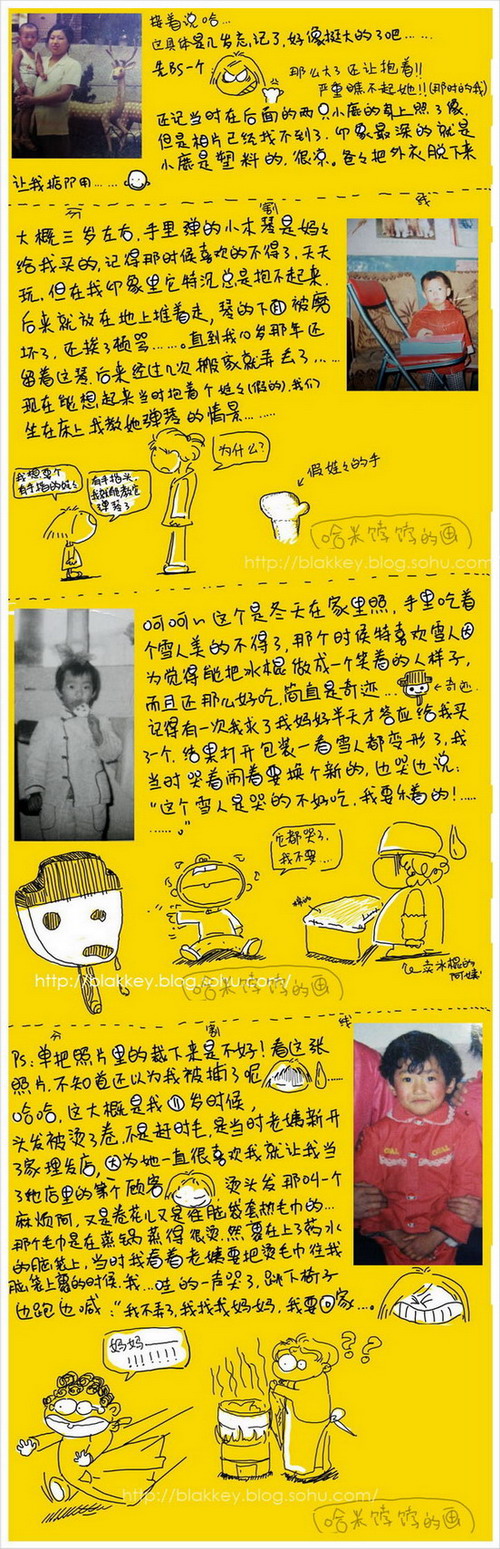 接着说哈…
这具体是几岁忘记了,好像挺大的了吧……
先BS一个
那么大了还让抱着!!
严重瞧不起她!!(那时的我)
还记当时在后面的两只小鹿的身上照了像,
但是相片已经找不到了.印象最深的就是
小鹿是塑料的,很凉。爸爸把外衣脱下来
让我垫PP用……
分 割 线
大概三岁左右,手里弹的小木琴是妈妈
给我买的,记得那时候喜欢的不得了,天天
玩,但在我印象里它特沉总是抱不起来.
后来就放在地上推着走,琴的下面被磨
坏了,还挨了顿骂……。直到我10岁那年还
留着这琴.后来经过几次搬家就弄丢了……
现在能想起来当时抱着个娃娃(假的).我们
坐在床上我教她弹琴的情景………
为什么?
我想要个
有手指的娃娃
有手指头,
我就能教它
弹琴了
假娃娃的手
(哈米饽饽的画)
http://blakkey.blog.sohu.com/
呵呵~这个是冬天在家里照,手里吃着
个雪人美的不得了,那个时候特喜欢雪人因
为觉得能把冰棍做成一个笑着的人样子,
而且还那么好吃.简直是奇迹…
←奇迹
记得有一次我求了我妈妈半天才答应给我买
了个.结果打开包装一看雪人都变形了,我
当时哭着闹着要换个新的,边哭边说:
“这个雪人是哭的不好吃.我要乐着的!……
……”
它都哭了,
我不要…
卖冰棍的
阿姨
http://blakkey.blog.sohu.com/
(哈米饽饽的画)
分 割 线
PS:单把照片里的裁下来是不好!看这张
照片.不知道还以为我被捕了呢……
哈哈,这大概是我 岁时候,
头发被烫了卷.不是赶时毛,是当时老姨新开
了家理发店,因为她一直很喜欢我就让我当
了她店里的第个顾客 烫头发那叫一个
麻烦阿,又是卷花儿又是往脑袋套热毛巾的…
那个毛巾是在蒸锅蒸得很烫.然要在上了药水
的脑袋上,当时我看着老姨要把烫毛巾往我
脑袋上裹的时候.我…哇的一声哭了,跳下椅子
边跑边喊:“我不弄了,我找我妈妈,我要回家…。
妈妈——
!!!!!!!
???
http://blakkey.blog.sohu.com/
(哈米饽饽的画)